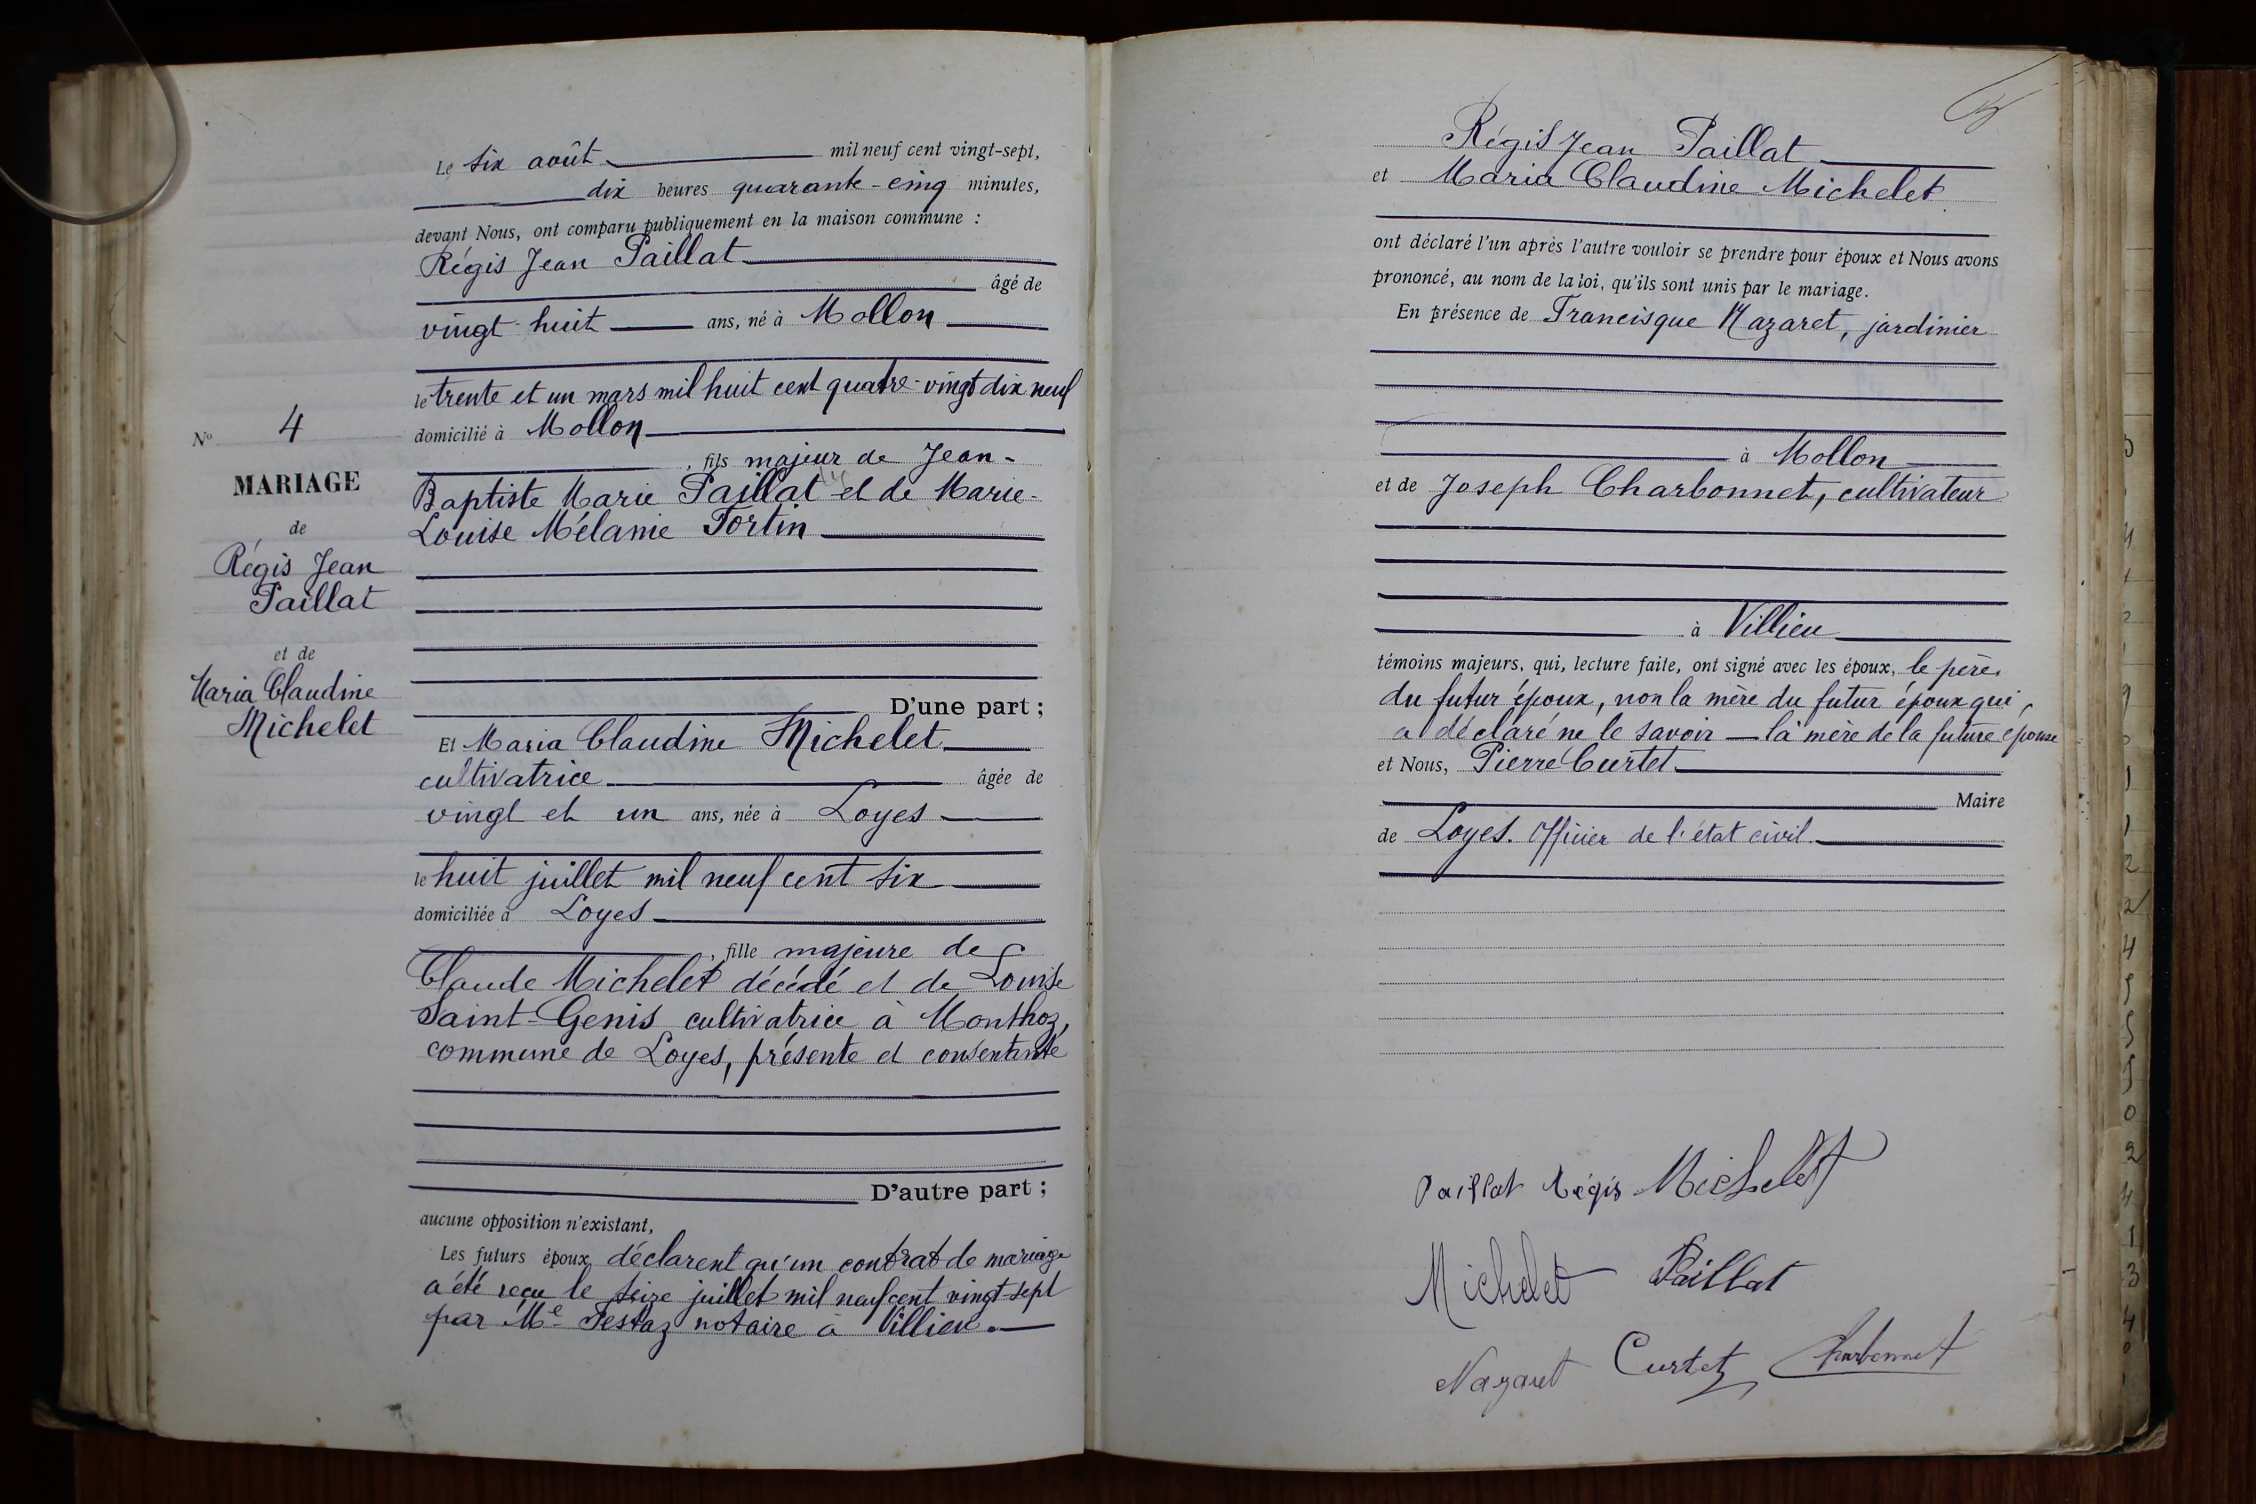 Le six août mil neuf cent vingt-sept,
dix heures quarante-cinq minutes,
devant Nous, ont comparu publiquement en la maison commune :
Régis Jean Paillat
âgé de
vingt-huit ans, né à Mollon
le trente et un mars mil huit cent quatre-vingt dix neuf
domicilié à Mollon
, fils majeur de Jean-
Baptiste Marie Paillat et de Marie-
Louise Mélanie Fortin
D'une part ;
Et Maria Claudine Michelet
cultivatrice âgée de
vingt et un ans, née à Loyes
le huit juillet mil neuf cent six
domiciliée à Loyes
, fille majeure de
Claude Michelet décédé et de Louise
Saint-Genis cultivatrice à Monthoz,
commune de Loyes, présente et consentante
D'autre part ;
aucune opposition n'existant,
Les futurs époux déclarent qu'un contrat de mariage
a été reçu le seize juillet mil neuf cent vingt-sept
par Me Testaz notaire à Villieu.
No 4
MARIAGE
de
Régis Jean
Paillat
et de
Maria Claudine
Michelet
Régis Jean Paillat
et Maria Claudine Michelet
ont déclaré l'un après l'autre vouloir se prendre pour époux et Nous avons
prononcé, au nom de la loi, qu'ils sont unis par le mariage.
En présence de Francisque Nazaret, jardinier
à Mollon
et de Joseph Charbonnet, cultivateur
à Villieu
témoins majeurs, qui, lecture faite, ont signé avec les époux, le père
du futur époux, non la mère du futur époux qui,
a déclaré ne le savoir — la mère de la future épouse
et Nous, Pierre Curtet
Maire
de Loyes. Officier de l'état civil.
Paillat Régis Michelet
Michelet Paillat
Nazaret Curtet Charbonnet